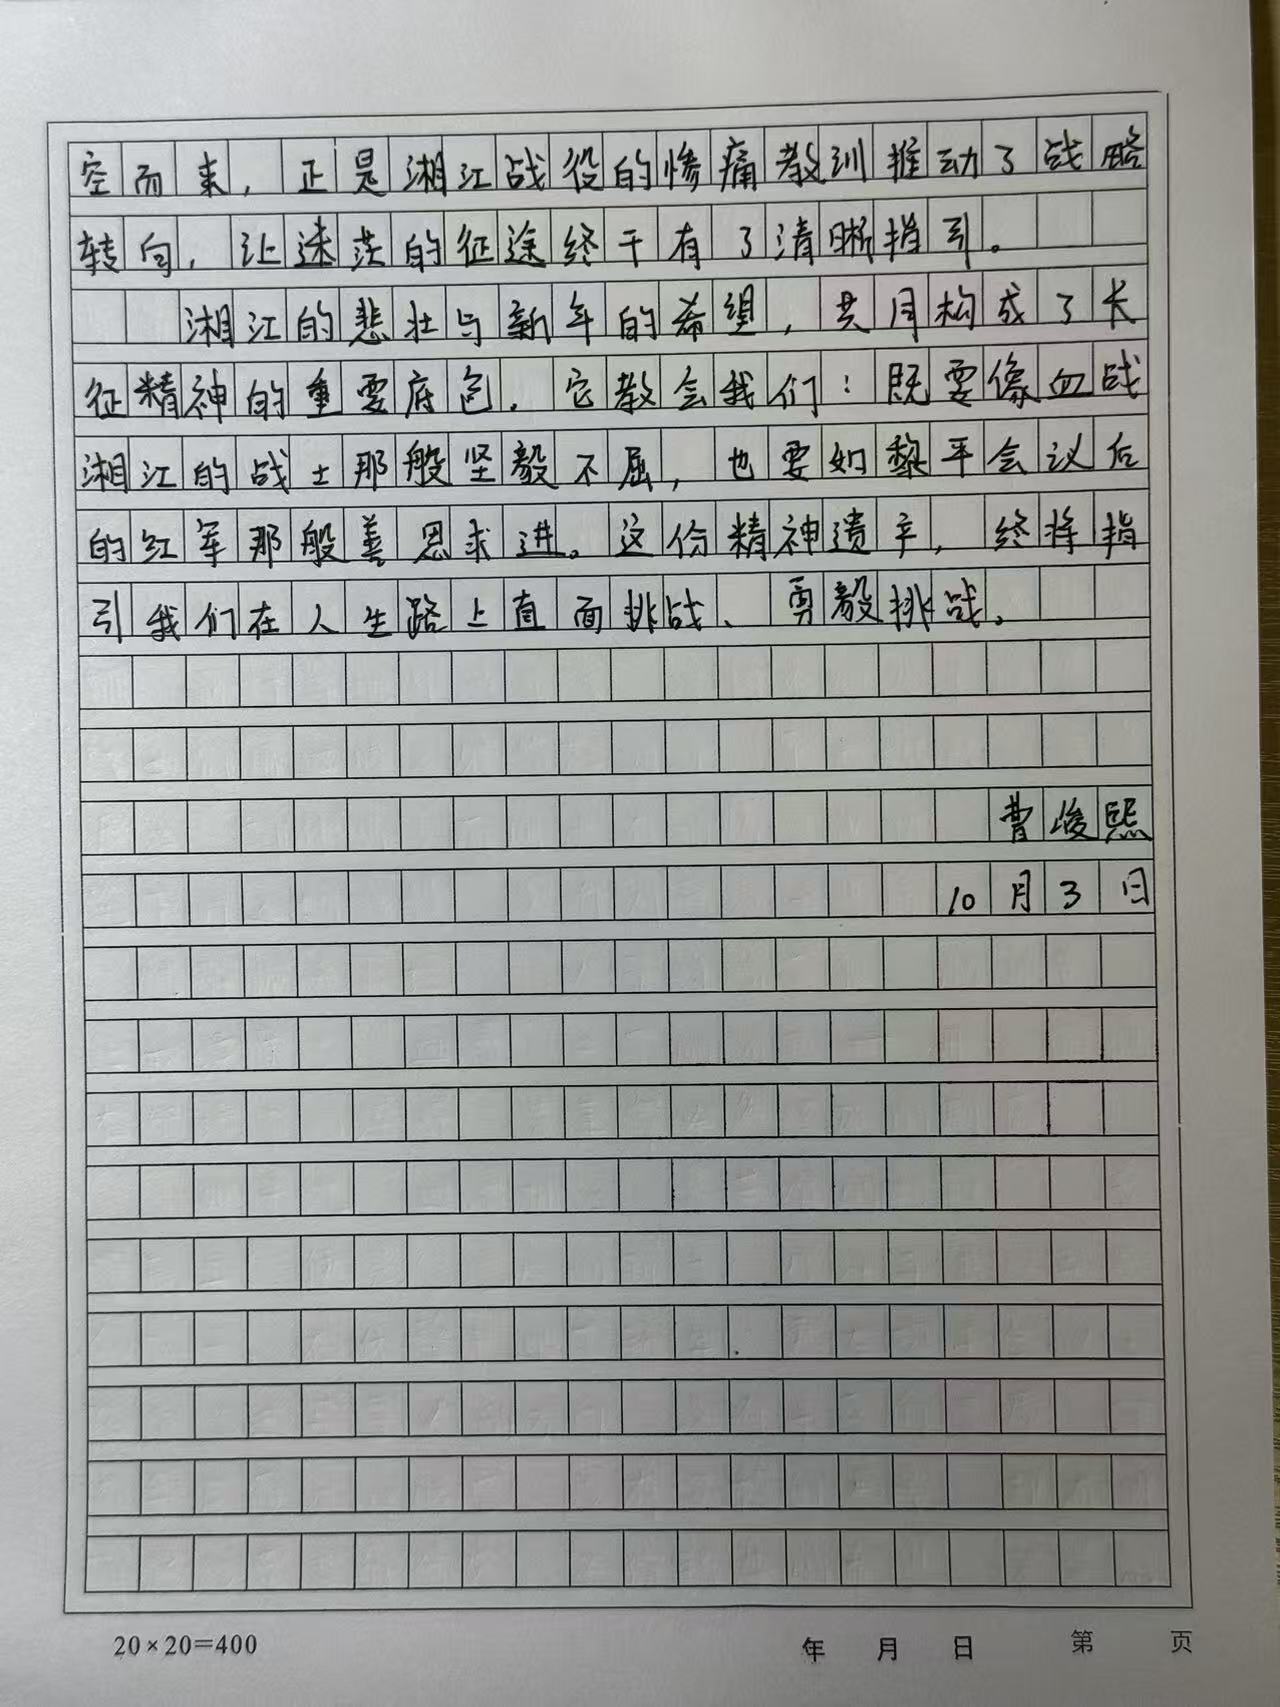 空而来,正是湘江战役的惨痛教训推动了战略
转向,让迷茫的征途终于有了清晰指引。
湘江的悲壮与新年的希望,共同构成了长
征精神的重要底色。它教会我们:既要像血战
湘江的战士那般坚毅不屈,也要如黎平会议后
的红军那般善思求进。这份精神遗产,终将指
引我们在人生路上直面挑战、勇毅挑战。
曹峻熙
10月3日
20×20=400 年 月 日 第 页